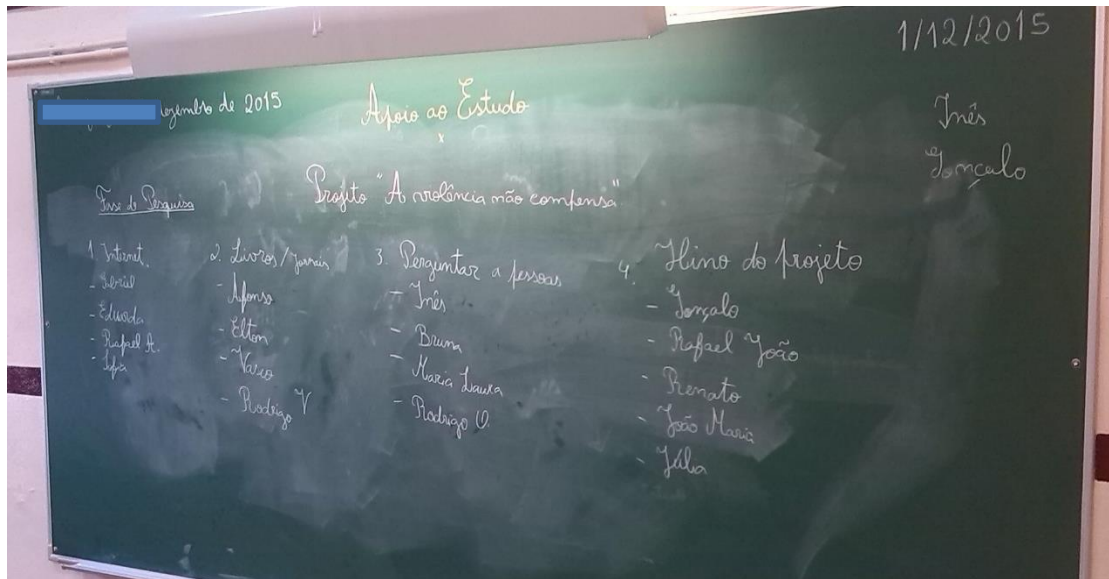 1/12/2015
Dezembro de 2015
Apoio ao Estudo
Inês
Gonçalo
Projeto "A violência não compensa"
Fase de Pesquisa
1. Internet
- Eduarda
- Rafael A.
- Sofia
2. Livros/jornais
- Afonso
- Elton
- Vasco
- Rodrigo V
3. Perguntar a pessoas
- Inês
- Bruna
- Maria Laura
- Rodrigo O.
4. Hino do projeto
- Gonçalo
- Rafael João
- Renato
- João Maria
- Júlia